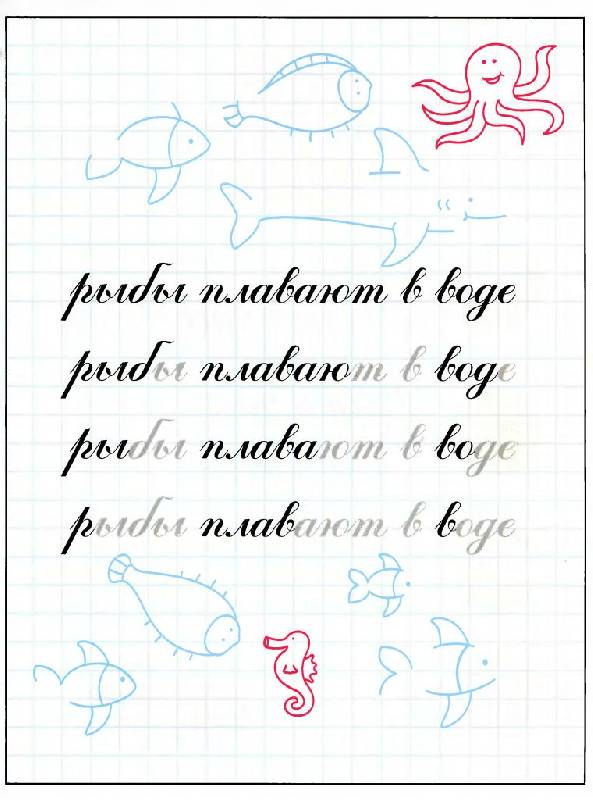 рыбы плавают в воде
рыбы плавают в воде
рыбы плавают в воде
рыбы плавают в воде